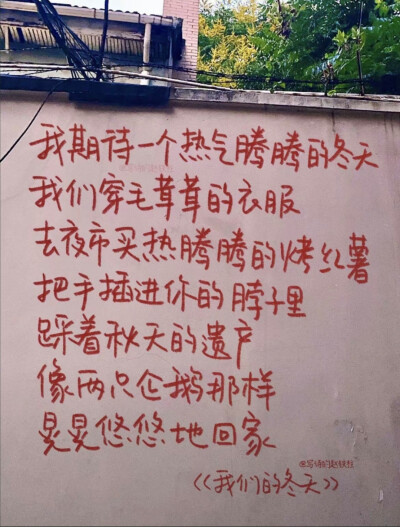 我期待一个热气腾腾的冬天
我们穿毛茸茸的衣服
去夜市买热腾腾的烤红薯
把手插进你的脖子里
踩着秋天的遗产
像两只企鹅那样
晃晃悠悠地回家
《我们的冬天》